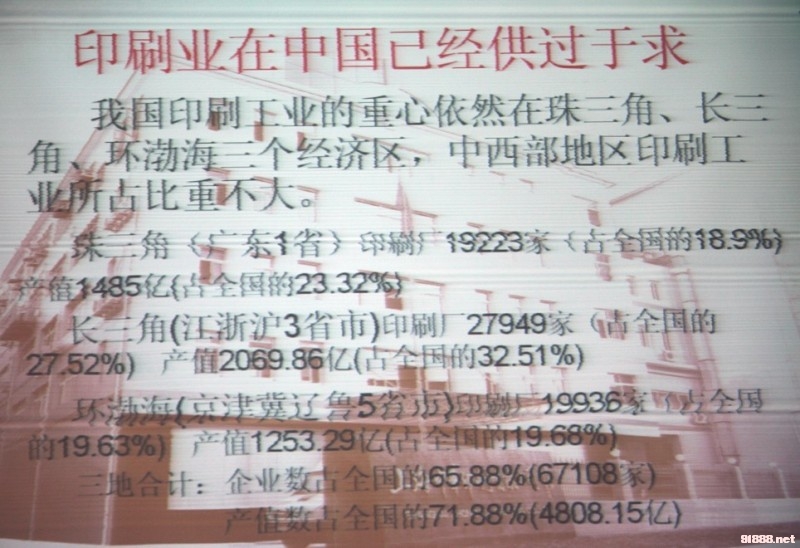 印刷业在中国已经供过于求
我国印刷工业的重心依然在珠三角、长三
角、环渤海三个经济区，中西部地区印刷工
业所占比重不大。
珠三角（广东1省）印刷厂19223家（占全国的18.9%)
产值1485亿(占全国的23.32%)
长三角(江浙沪3省市)印刷厂27949家（占全国的
27.52%) 产值2069.86亿(占全国的32.51%)
环渤海(京津冀辽鲁5省市)印刷厂19936家（占全国
的19.63%) 产值1253.29亿(占全国的19.68%)
三地合计：企业数占全国的65.88%(67108家)
产值数占全国的71.88%(4808.15亿)
91888.net